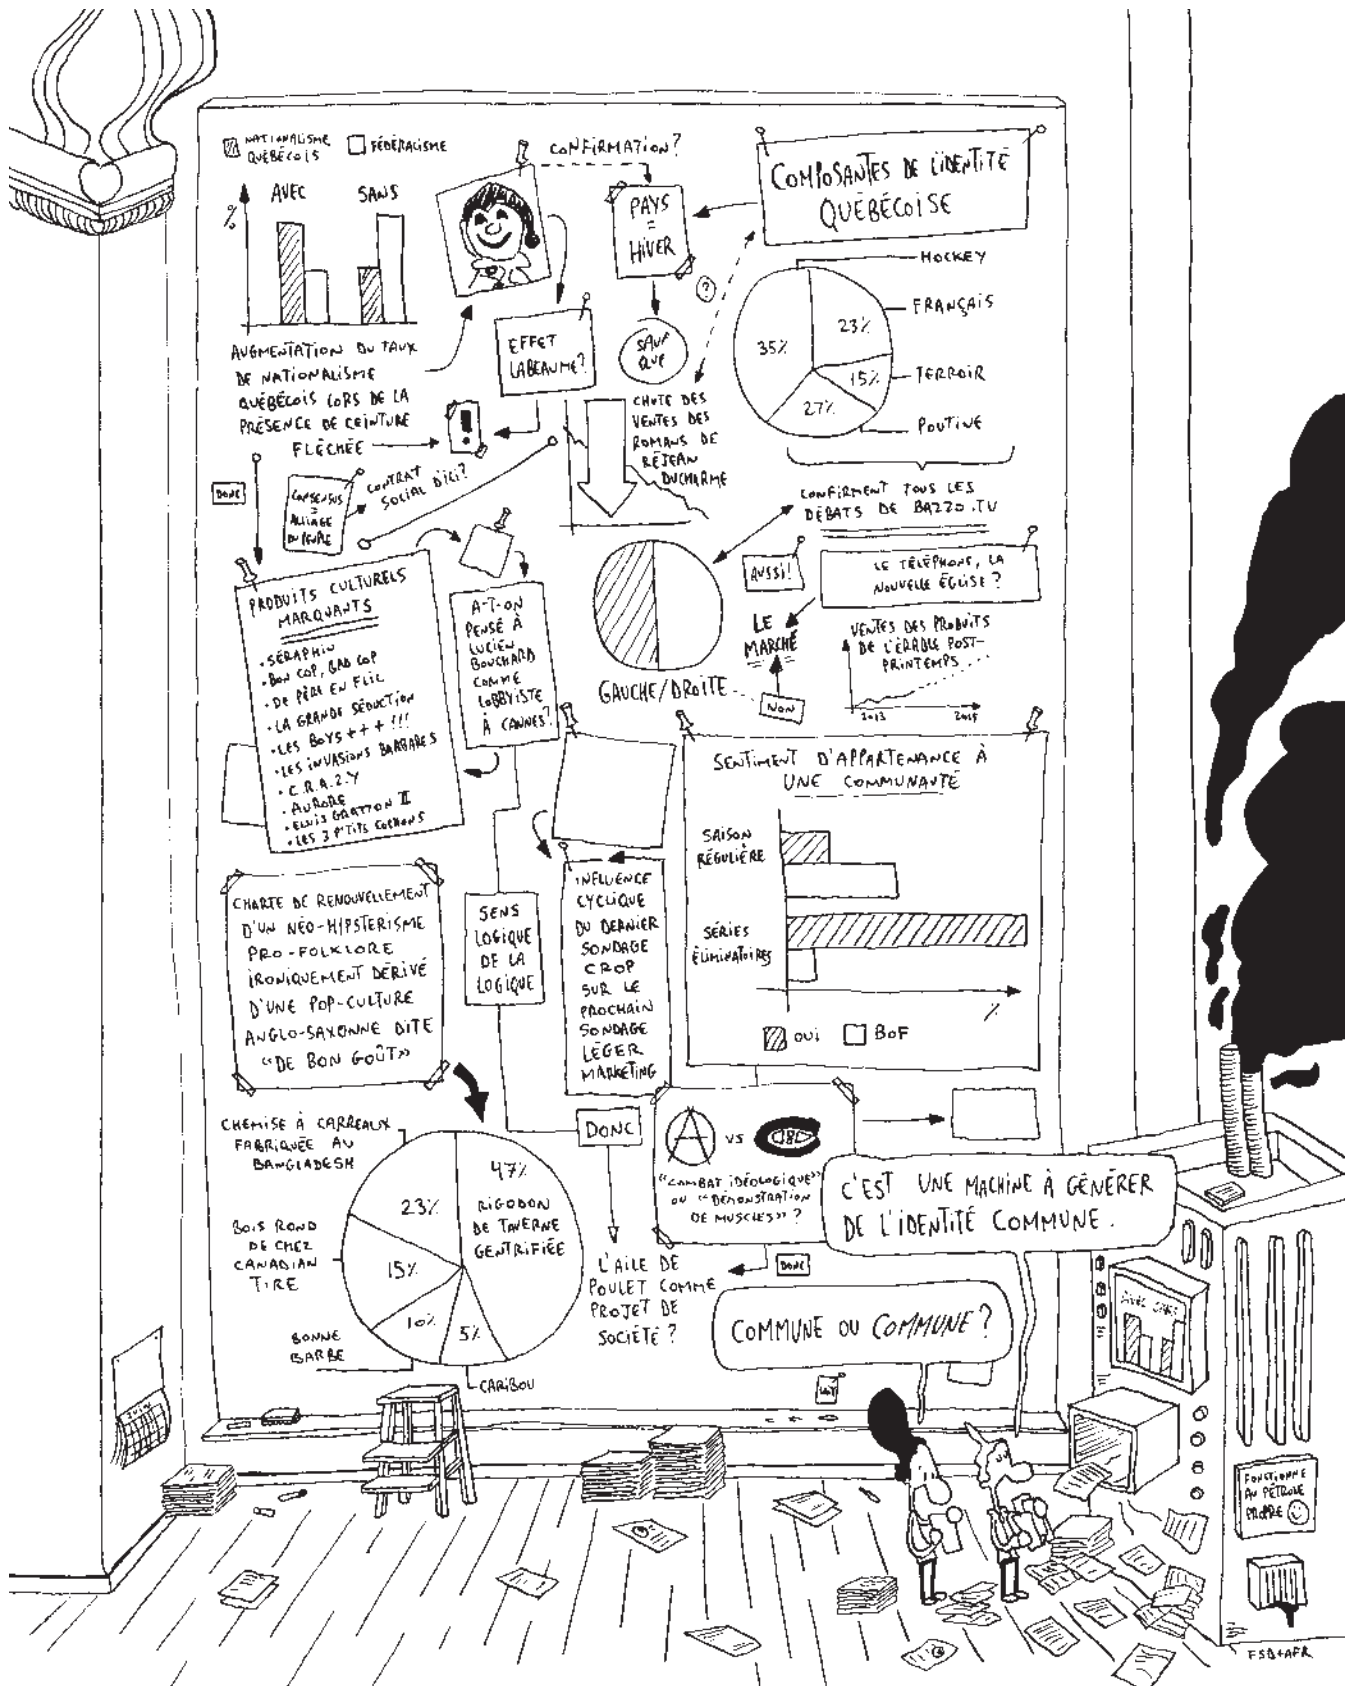 NATIONALISME
QUÉBÉCOIS
FÉDÉRALISME
AVEC
SANS
%
AUGMENTATION DU TAUX
DE NATIONALISME
QUÉBÉCOIS LORS DE LA
PRÉSENCE DE CEINTURE
FLÉCHÉE
CONFIRMATION?
PAYS
=
HIVER
COMPOSANTES DE L'IDENTITÉ
QUÉBÉCOISE
EFFET
LABEAUME?
SAUF
QUE
?
!
CHUTE DES
VENTES DES
ROMANS DE
RÉJEAN
DUCHARME
HOCKEY
FRANÇAIS
TERROIR
POUTINE
35%
23%
15%
27%
CONFIRMENT TOUS LES
DÉBATS DE BAZZO.TV
DONC
CONSENSUS
=
ALLIAGE
DU PEUPLE
CONTRAT
SOCIAL D'ICI?
PRODUITS CULTURELS
MARQUANTS
• SÉRAPHIN
• BON COP, BAD COP
• DE PÈRE EN FLIC
• LA GRANDE SÉDUCTION
• LES BOYS + + + !!!
• LES INVASIONS BARBARES
• C.R.A.Z.Y
• AURORE
• ELVIS GRATTON II
• LES 3 P'TITS COCHONS
A-T-ON
PENSÉ À
LUCIEN
BOUCHARD
COMME
LOBBYISTE
À CANNES?
GAUCHE/DROITE
AUSSI!
LE TÉLÉPHONE, LA
NOUVELLE ÉGLISE?
LE
MARCHÉ
NON
VENTES DES PRODUITS
DE L'ÉRABLE POST-
PRINTEMPS
2013
2015
SENTIMENT D'APPARTENANCE À
UNE COMMUNAUTÉ
SAISON
RÉGULIÈRE
SÉRIES
ÉLIMINATOIRES
%
OUI
BOF
CHARTE DE RENOUVELLEMENT
D'UN NÉO-HIPSTERISME
PRO-FOLKLORE
IRONIQUEMENT DÉRIVÉ
D'UNE POP-CULTURE
ANGLO-SAXONNE DITE
«DE BON GOÛT»
SENS
LOGIQUE
DE LA
LOGIQUE
INFLUENCE
CYCLIQUE
DU DERNIER
SONDAGE
CROP
SUR LE
PROCHAIN
SONDAGE
LÉGER
MARKETING
CHEMISE À CARREAUX
FABRIQUÉE AU
BANGLADESH
BOIS ROND
DE CHEZ
CANADIAN
TIRE
BONNE
BARBE
CARIBOU
47%
RIGODON
DE TAVERNE
GENTRIFIÉE
23%
15%
10%
5%
DONC
A VS CH
"COMBAT IDÉOLOGIQUE"
OU "DÉMONSTRATION
DE MUSCLES"?
DONC
L'AILE DE
POULET COMME
PROJET DE
SOCIÉTÉ?
C'EST UNE MACHINE À GÉNÉRER
DE L'IDENTITÉ COMMUNE.
COMMUNE OU COMMUNE?
AVEC SANS
JUIN
FONCTIONNE
AU PÉTROLE
PROPRE
FSB+AFR